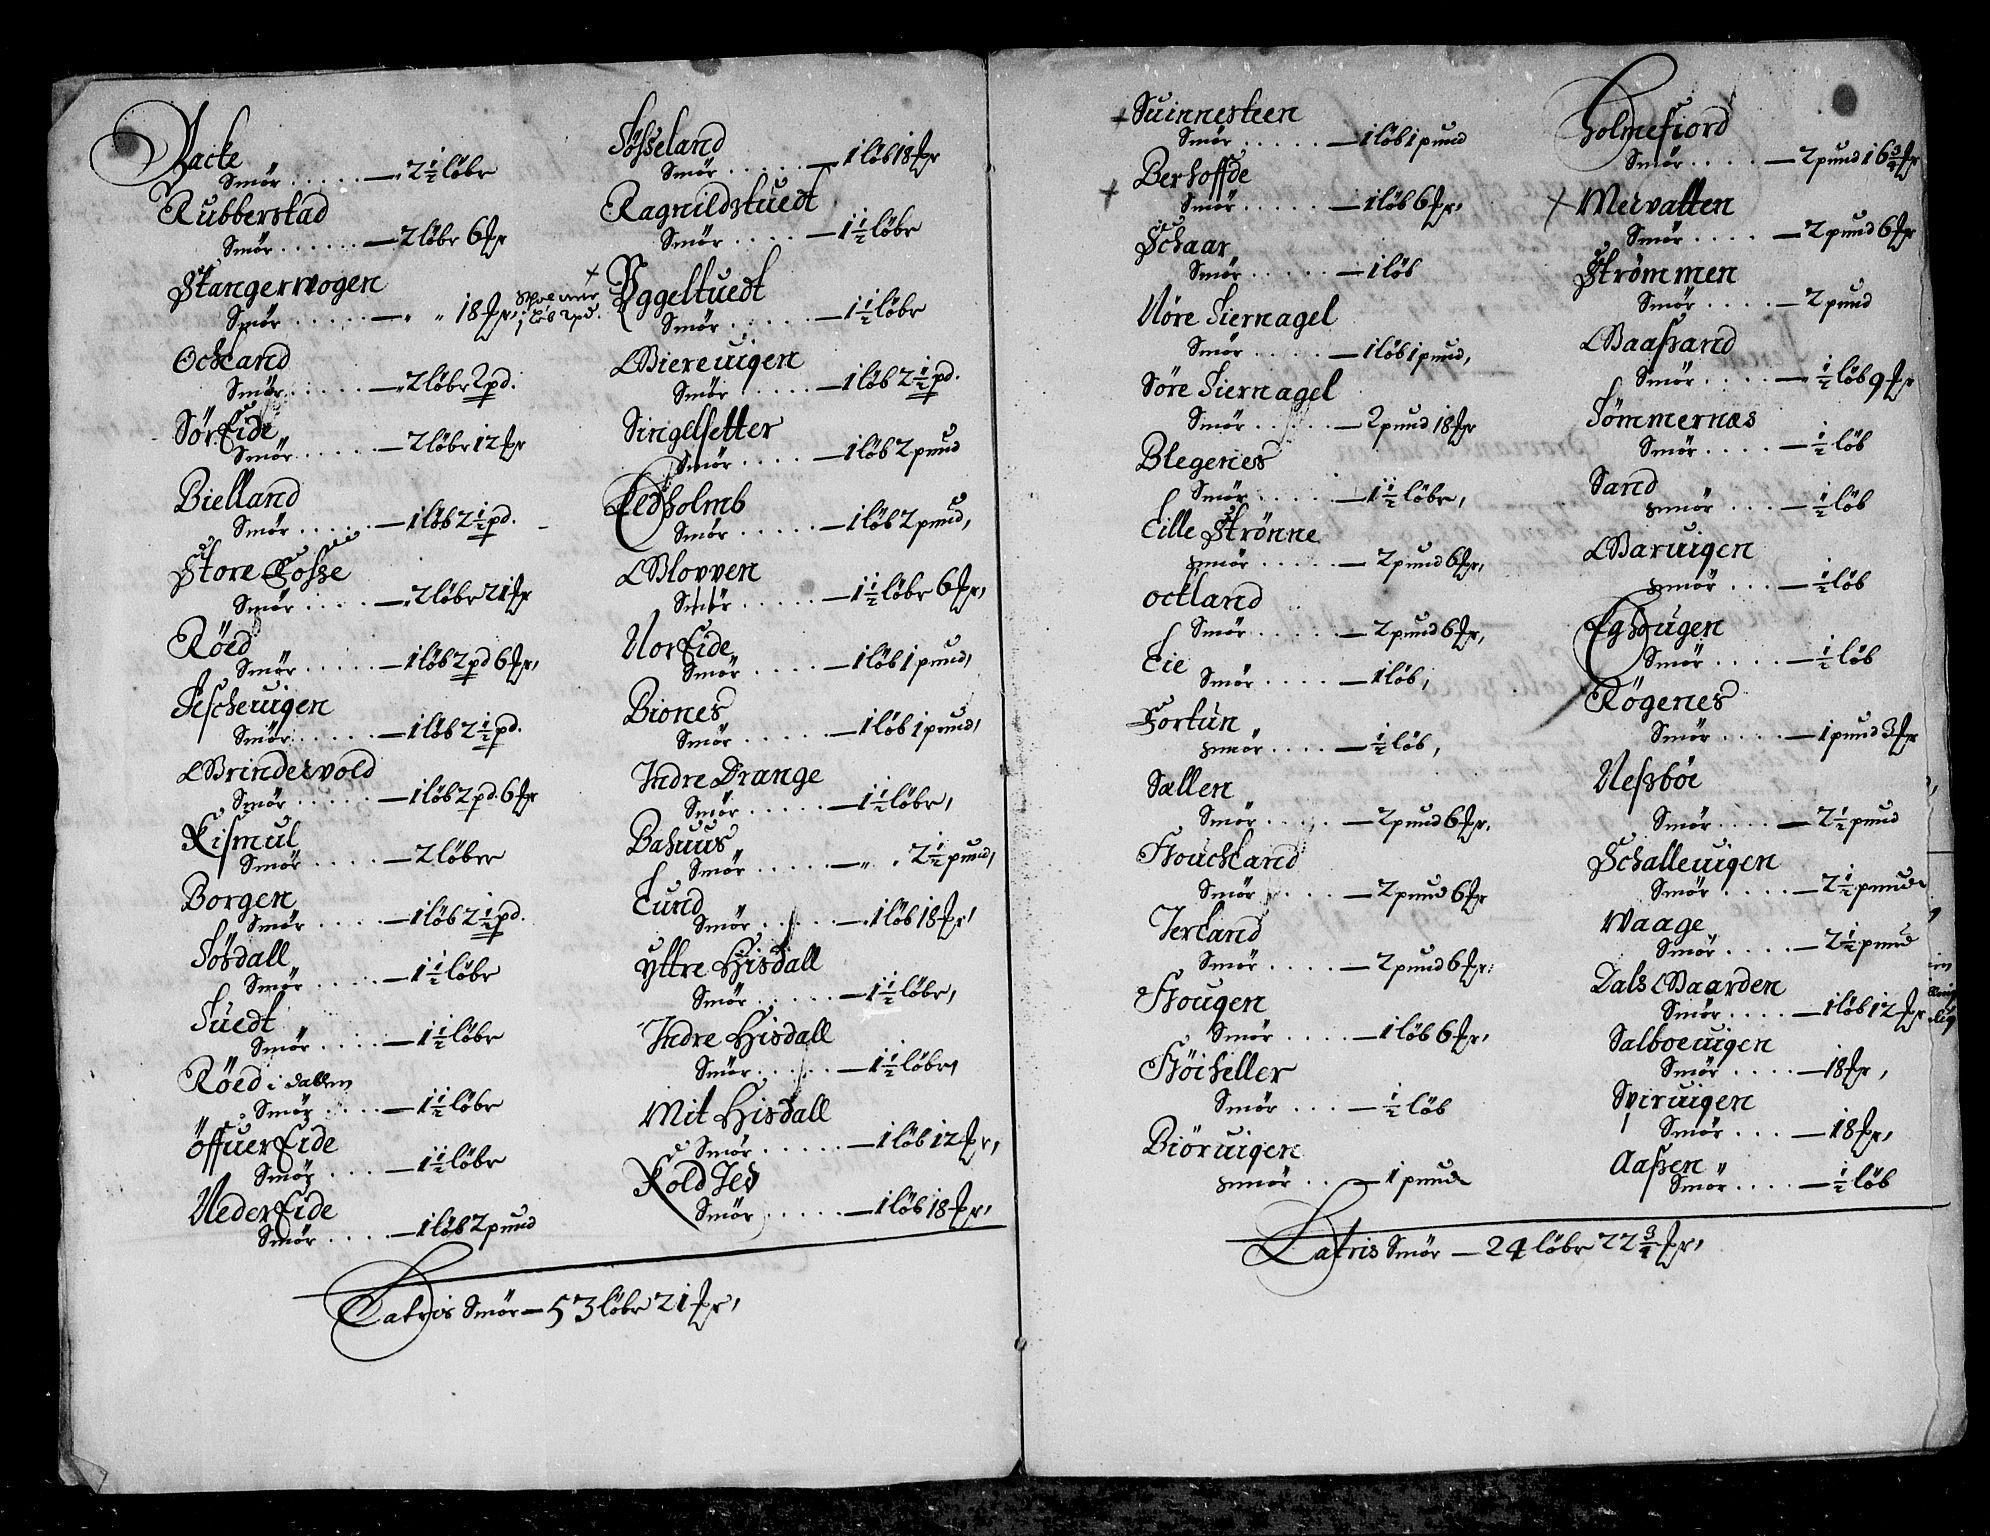 Backe
Smör . . . . . — 2 1/2 löbr
Rubberstad
Smör . . . . . . — 2 löbr 6 
Stangerwogen
Smör . . . . . . — " " 18
1 löb 2 pd.
Ochland
Smör . . . . . — 2 löbr 2 pd.
Sör Eide
Smör . . . . . — 2 löbr 12
Bielland
Smör . . . . . — 1 löb 2 1/2 pd.
Store Fosse
Smör . . . . — 2 löbr 21
Röed
Smör . . . . . — 1 löb 2 pd 6
Fescheuigen
Smör . . . . . — 1 löb 2 1/2 pd.
Brindesvold
Smör . . . . . — 1 löb 2 pd. 6
Kismul
Smör . . . . — 2 löber
Borgen
Smör . . . . — 1 löb 2 1/2 pd.
Sösdall
Smör . . . . — 1 1/2 löbr
Tuedt
Smör . . . . — 1 1/2 löbr
Röed i dallen
Smör . . . . — 1 1/2 löbr
Öffuer Eide
Smör . . . . — 1 1/2 löbr
Neder Eide
Smör . . . . — 1 löb 2 pund
Latris Smör — 53 löbr 21
Tösseland
Smör . . . . . — 1 löb 18
Ragnildstuedt
Smör . . . . — 1 1/2 löbr
+ Yggeltuedt
Smör . . . . . — 1 1/2 löbr
Biereuigen
Smör . . . . . — 1 löb 2 1/2 pd.
Singelsetter
Smör . . . . — 1 löb 2 pund
Ledholmb
Smör . . . . . — 1 löb 2 pund,
Blovven
Smör . . . . . — 1 1/2 löbr 6
Nor Eide
Smör . . . . . — 1 löb 1 pund,
Biones
Smör . . . . . — 1 löb 1 pund,
Indre Drange
Smör . . . . . — 1 1/2 löbr,
Bahuus
Smör . . . . . — " . 2 1/2 pund,
Lund
Smör . . . . . — 1 löb 18
Yttre Hisdall
Smör . . . . . — 1 1/2 löbr,
Indre Hisdall
Smör . . . . . — 1 1/2 löbr,
Mit Hisdall
Smör . . . . . — 1 löb 12
Kold
Smör . . . . . — 1 löb 18
+ Suinnesteen
Smör . . . . . — 1 löb 1 pund
+ Berhoffde
Smör . . . . . — 1 löb 6
Schaar
Smör . . . . . — 1 löb
Nöre Siernagel
Smör . . . . . — 1 löb 1 pund,
Söre Siernagel
Smör . . . . . — 2 pund 18
Blegenes
Smör . . . . . — 1 1/2 löbr,
Lille Strönne
Smör . . . . . — 2 pund 6
Ockland
Smör . . . . . — 2 pund 6
Lie
Smör . . . . — 1 löb,
Fortun
Smör . . . . — 1/2 löb,
Sællen
Smör . . . . . — 2 pund 6
Houchland
Smör . . . . — 2 pund 6
Jerland
Smör . . . . — 2 pund 6
Hougen
Smör . . . . — 1 löb 6
Höiheller
Smör . . . — 1/2 löb
Biöruigen
Smör . . — 1 pund
Holmefiord
Smör . . . . — 2 pund 16 3/4
+ Meivatten
Smör . . . . — 2 pund 6
Strömmen
Smör . . . . — 2 pund
Baassand
Smör . . . . — 1/2 löb 9
Sömmernæs
Smör . . . . — 1/2 löb
Sand
Smör . . . . — 1/2 löb
Baruigen
Smör . . . . — 1/2 löb
Eghougen
Smör . . . . — 1/2 löb
Rögenes
Smör . . . . — 1 pund 3
Nessböe
Smör . . . . — 2 1/2 pund
Schalleuigen
Smör . . . . — 2 1/2 pund
Waage
Smör . . . . — 2 1/2 pund
Dals Baarden
Smör . . . . — 1 löb 12
Salboeuigen
Smör . . . . — 18
Spiruigen
Smör . . . . — 18
Aassen
Smör . . . . — 1/2 löb
Latris Smör — 24 löbr 22 3/4